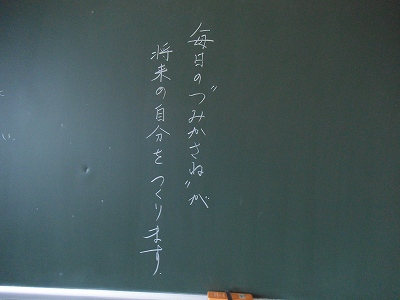 毎日の〝つみかさね〟が
将来の自分をつくります.